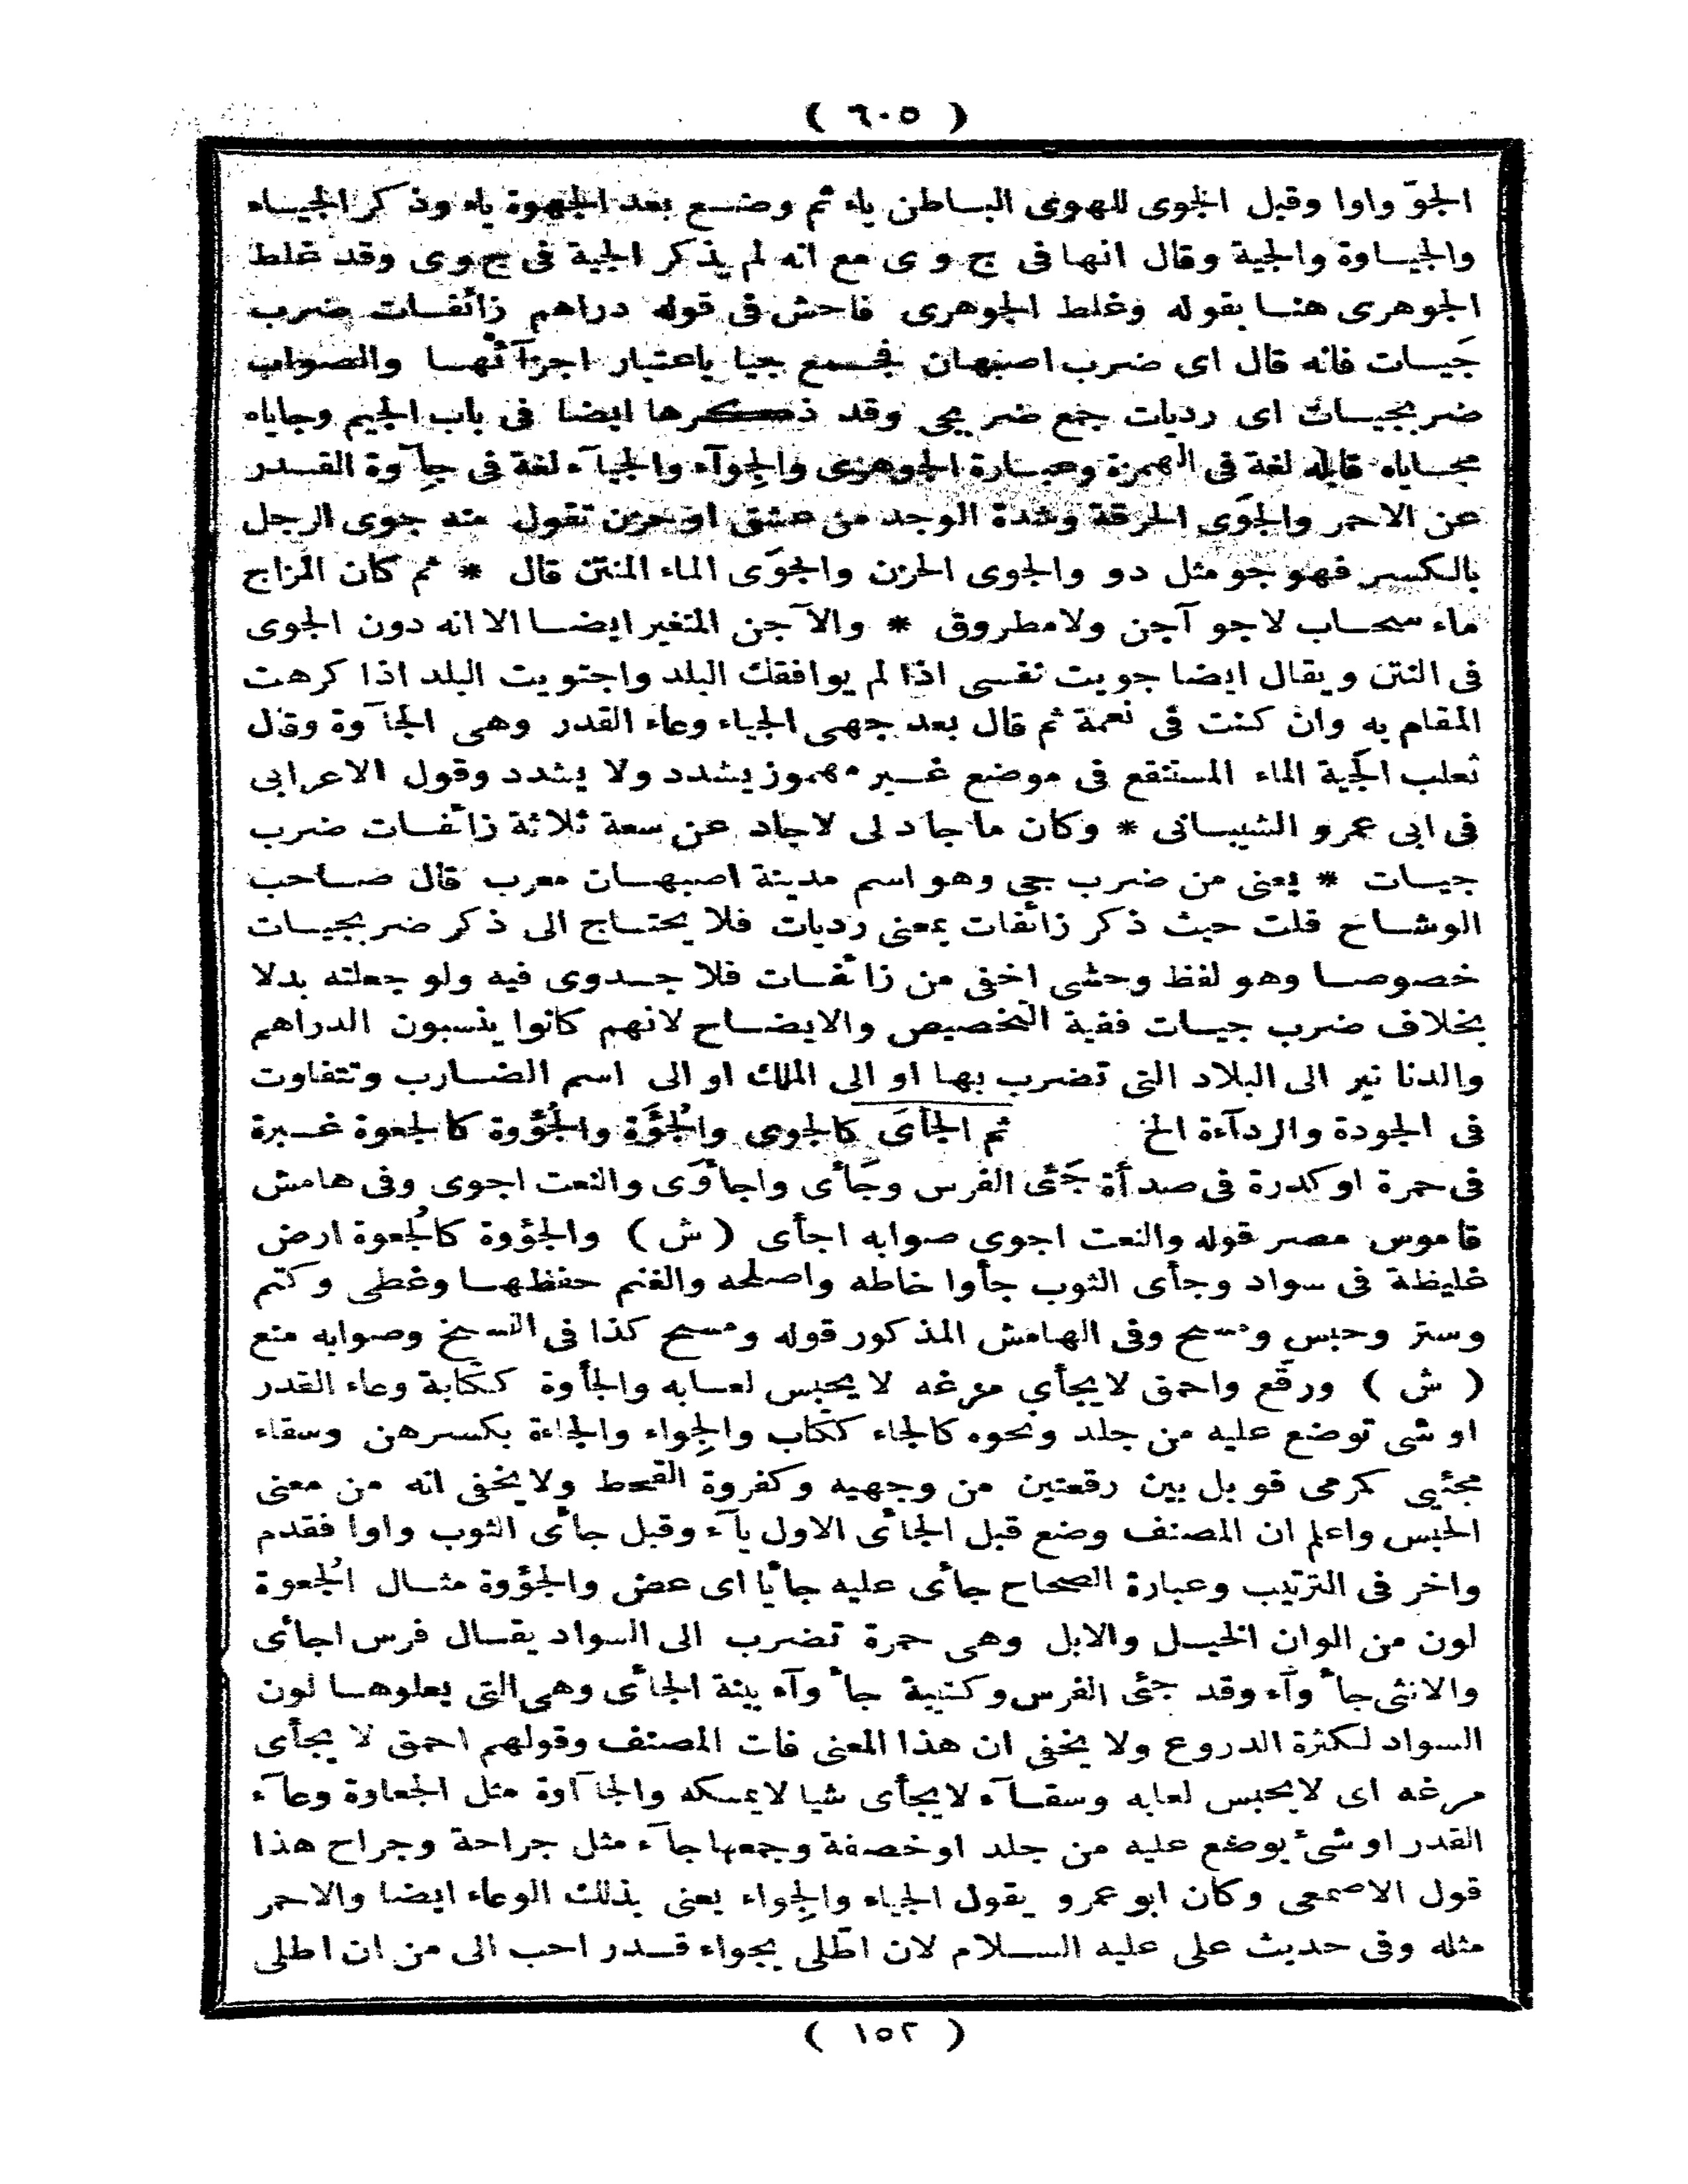 ( ٦٠٥ )
الجوّ واوا وقبل الجوى للهوى الباطن ياء ثم وضع بعد الجهوة ياء وذكر الجياء
والجياوة والجية وقال انها فى ج و ى مع انه لم يذكر الجية فى ج وى وقد غلط
الجوهرى هنا بقوله وغلط الجوهرى فاحش فى قوله دراهم زائفات ضرب
جَيات فانه قال اى ضرب اصبهان فجمع جيا باعتبار اجزآئها والصواب
ضربجيات اى رديات جمع ضربجى وقد ذكرها ايضا فى باب الجيم وجاياه
مجاياه قابله لغة فى الهمزة وعبارة الجوهرى والجِوآء والجيآء لغة فى جِآوة القدر
عن الاحمر والجَوَى الحرقة وشدة الوجد من عشق او حزن تقول منه جوى الرجل
بالكسر فهو جو مثل دو والجوى الحزن والجوَى الماء المنتن قال * ثم كان المزاج
ماء سحاب لا جو آجن ولا مطروق * والآجن المتغير ايضا الا انه دون الجوى
فى النتن ويقال ايضا جويت نفسى اذا لم يوافقك البلد واجتويت البلد اذا كرهت
المقام به وان كنت فى نعمة ثم قال بعد جهى الجياء وعاء القدر وهى الجآوة وقال
ثعلب الجَية الماء المستنقع فى موضع غير مهموز يشدد ولا يشدد وقول الاعرابى
فى ابى عمرو الشيبانى * وكان ما جاد لى لا جاد عن سعة ثلاثة زائفات ضرب
جيات * يعنى من ضرب جى وهو اسم مدينة اصبهان معرب قال صاحب
الوشاح قلت حيث ذكر زائفات بمعنى رديات فلا يحتاج الى ذكر ضربجيات
خصوصا وهو لفظ وحشى اخفى من زائفات فلا جدوى فيه ولو جعلته بدلا
بخلاف ضرب جيات ففيه التخصيص والايضاح لانهم كانوا ينسبون الدراهم
والدنانير الى البلاد التى تضرب بها او الى الملك او الى اسم الضارب وتتفاوت
فى الجودة والردآءة الخ ثم الجأَى كالجوى والجُؤَة والجُؤوة كالجعوة غبرة
فى حمرة او كدرة فى صدأة جَئى الفرس وجَأى واجأوَى والنعت اجوى وفى هامش
قاموس مصر قوله والنعت اجوى صوابه اجأى ( ش ) والجؤوة كالجُعوة ارض
غليظة فى سواد وجأى الثوب جأوا خاطه واصلحه والغنم حفظها وغطى وكتم
وستر وحبس ومسح وفى الهامش المذكور قوله ومسح كذا فى النسخ وصوابه منع
( ش ) ورقَع واحمق لا يجأى مرغه لا يحبس لعابه والجأوة ككتابة وعاء القدر
او شى توضع عليه من جلد ونحوه كالجاء ككتاب والجِواء والجاءة بكسرهن وسقاء
مجئيى كرمى قوبل بين رقعتين من وجهيه وكفروة القحط ولا يخفى انه من معنى
الحبس واعلم ان المصنف وضع قبل الجأى الاول يآء وقبل جأى الثوب واوا فقدم
واخر فى الترتيب وعبارة الصحاح جأى عليه جأيا اى عض والجؤوة مثال الجُعوة
لون من الوان الخيل والابل وهى حمرة تضرب الى السواد يقال فرس اجأى
والانثى جأوآء وقد جئى الفرس وكتيبة جأوآء بينة الجأى وهى التى يعلوها لون
السواد لكثرة الدروع ولا يخفى ان هذا المعنى فات المصنف وقولهم احمق لا يجأى
مرغه اى لا يحبس لعابه وسقآء لا يجأى شيا لا يمسكه والجآوة مثل الجعاوة وعآء
القدر او شىء يوضع عليه من جلد او خصفة وجمعها جآء مثل جراحة وجراح هذا
قول الاصمعى وكان ابو عمرو يقول الجياء والجِواء يعنى بذلك الوعاء ايضا والاحمر
مثله وفى حديث على عليه السلام لان اطَّلى بجواء قدر احب الى من ان اطلى
( ١٥٢ )